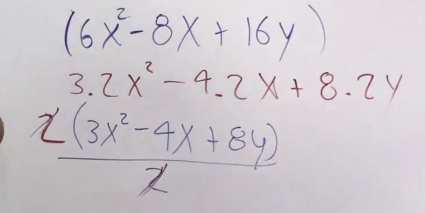 (6x² - 8x + 16y)
3.2x² - 4.2x + 8.2y
2(3x² - 4x + 8y)
2